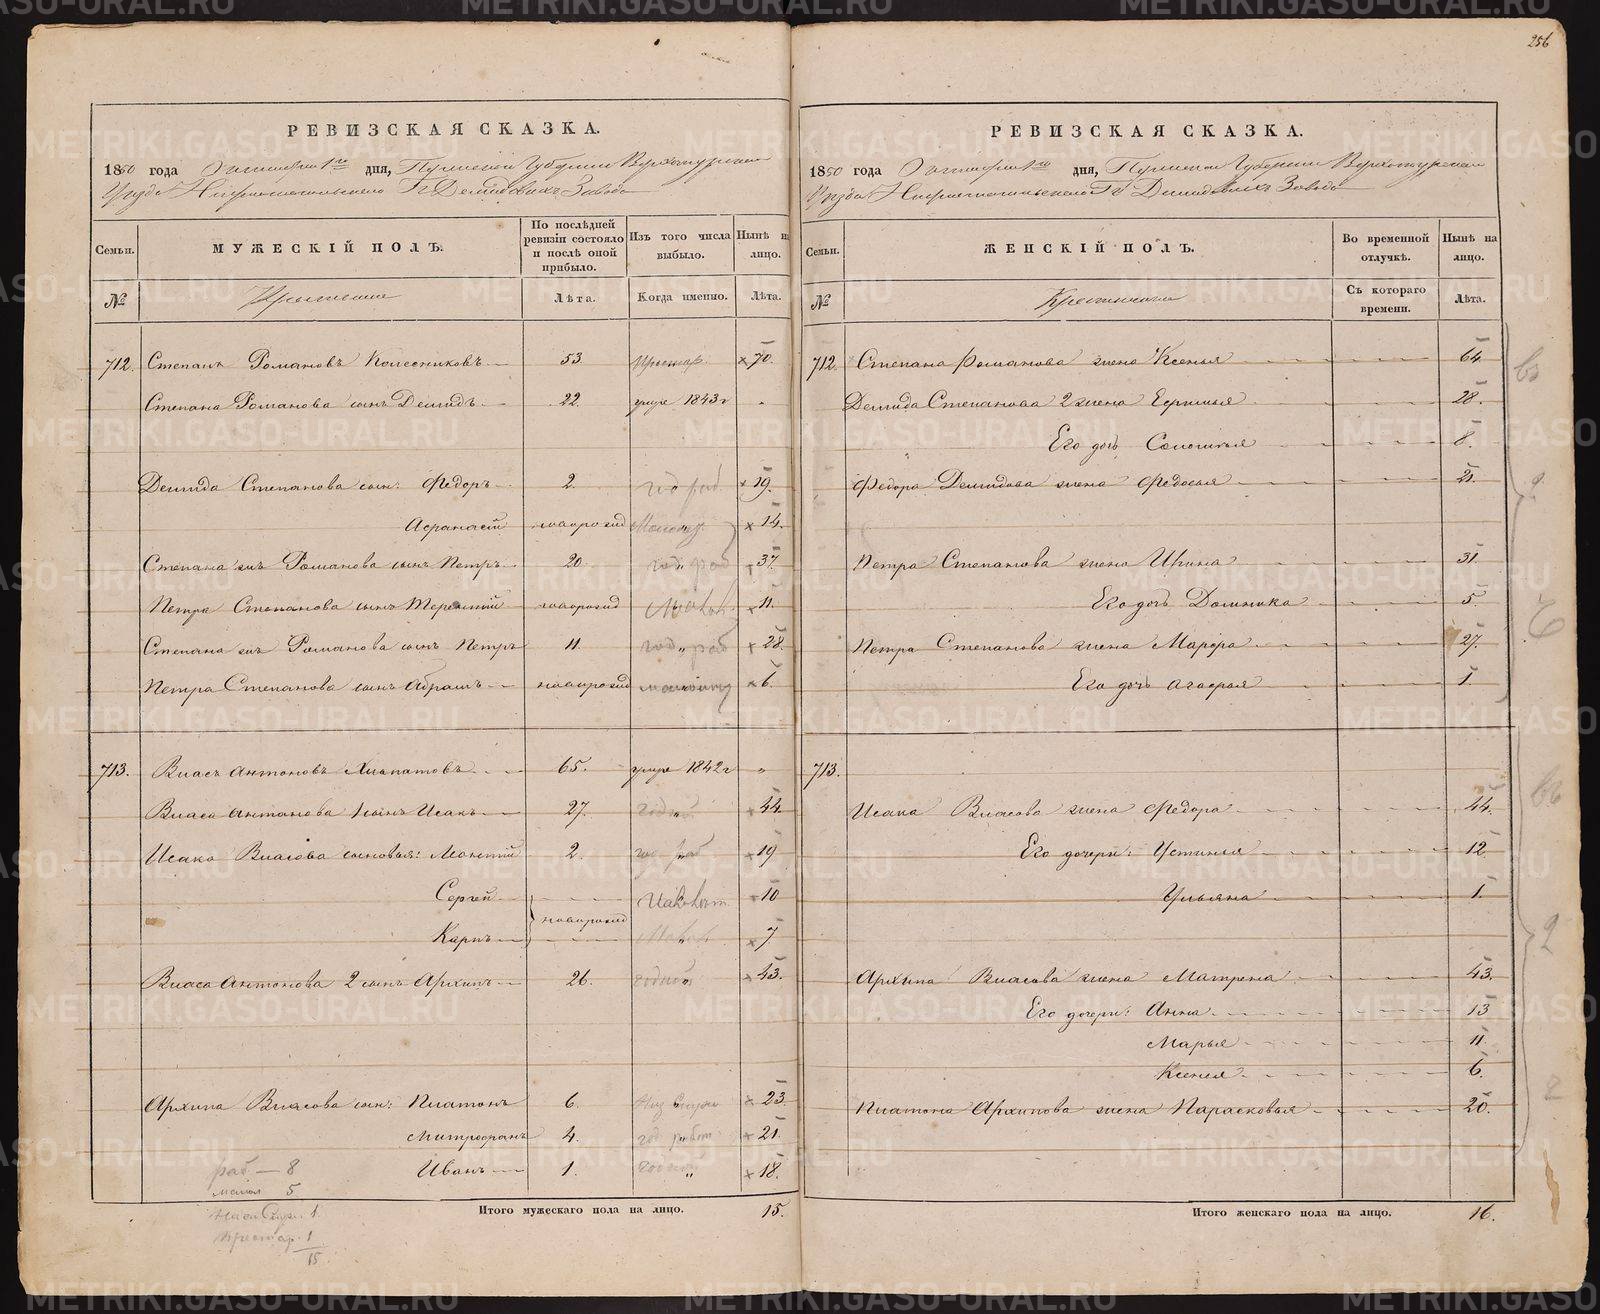 256
РЕВИЗСКАЯ СКАЗКА.
1850 года Октября 1го дня, Пермской Губернии Верхотурскаго
Уезда Нижнетагильскаго Гг Демидовыхъ Завода
Семьи. МУЖЕСКІЙ ПОЛЪ. По послѣдней ревизіи состояло и послѣ оной прибыло. Изъ того числа выбыло. Нынѣ на лицо.
№ Крестьяне Лѣта. Когда именно. Лѣта.
712. Степанъ Романовъ Колесниковъ 53. престар. 70.
Степана Романова сынъ Демидъ 22. умре 1843 г „
Демида Степанова сын: Федоръ 2. год раб. 19.
Афанасій новорожд 14.
Степана Романова сынъ Петръ 20. год раб 37.
Петра Степанова сынъ Терентій новорожд 11.
Степана Романова сынъ Петръ 11. год раб 28.
Петра Степанова сынъ Абрамъ новорожд 6.
713. Власъ Антоновъ 65. умре 1842 г „
Власа Антонова 1 сынъ Исакъ 27. 44.
Исака Власова сыновья: Леонтій 2. год раб 19
Сергей 10
новорожд
Карпъ 7
Власа Антонова 2 сынъ Архипъ 26. 43.
Архипа Власова сын: Платонъ 6. 23.
Митрофанъ 4. год работ 21.
Иванъ 1. „ 18.
Итого мужескаго пола на лицо. 15.
раб — 8
малол 5
1
Престар. 1
15
РЕВИЗСКАЯ СКАЗКА.
1850 года Октября 1го дня, Пермской Губернии Верхотурскаго
Уезда Нижнетагильскаго Гг Демидовыхъ Завода
Семьи. ЖЕНСКІЙ ПОЛЪ. Во временной отлучкѣ. Нынѣ на лицо.
№ Крестьяне Съ котораго времени. Лѣта.
712. Степана Романова жена Ксенья 64.
Демида Степанова 2 жена 28.
Его дочь Соломонья 8.
Федора Демидова жена Федосья 21.
Петра Степанова жена Ирина 31.
Его дочь Домника 5.
Петра Степанова жена Марфа 27.
Его дочь Агафья 1.
713.
Исака Власова жена Федора 44.
Его дочери: Устинья 12
Ульяна 1.
Архипа Власова жена Матрена 43.
Его дочери: Анна 13
Марья 11.
Ксенья 6.
Платона Архипова жена Парасковья 20.
Итого женскаго пола на лицо. 16.
METRIKI.GASO-URAL.RU